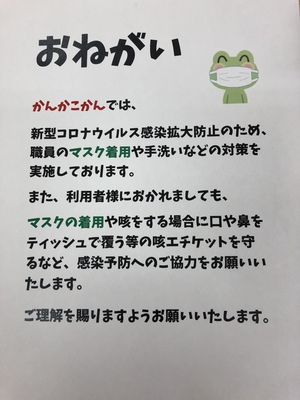 おねがい
かんかこかんでは、
新型コロナウイルス感染拡大防止のため、
職員のマスク着用や手洗いなどの対策を
実施しております。
また、利用者様におかれましても、
マスクの着用や咳をする場合に口や鼻を
ティッシュで覆う等の咳エチケットを守
るなど、感染予防へのご協力をお願いい
たします。
ご理解を賜りますようお願いいたします。